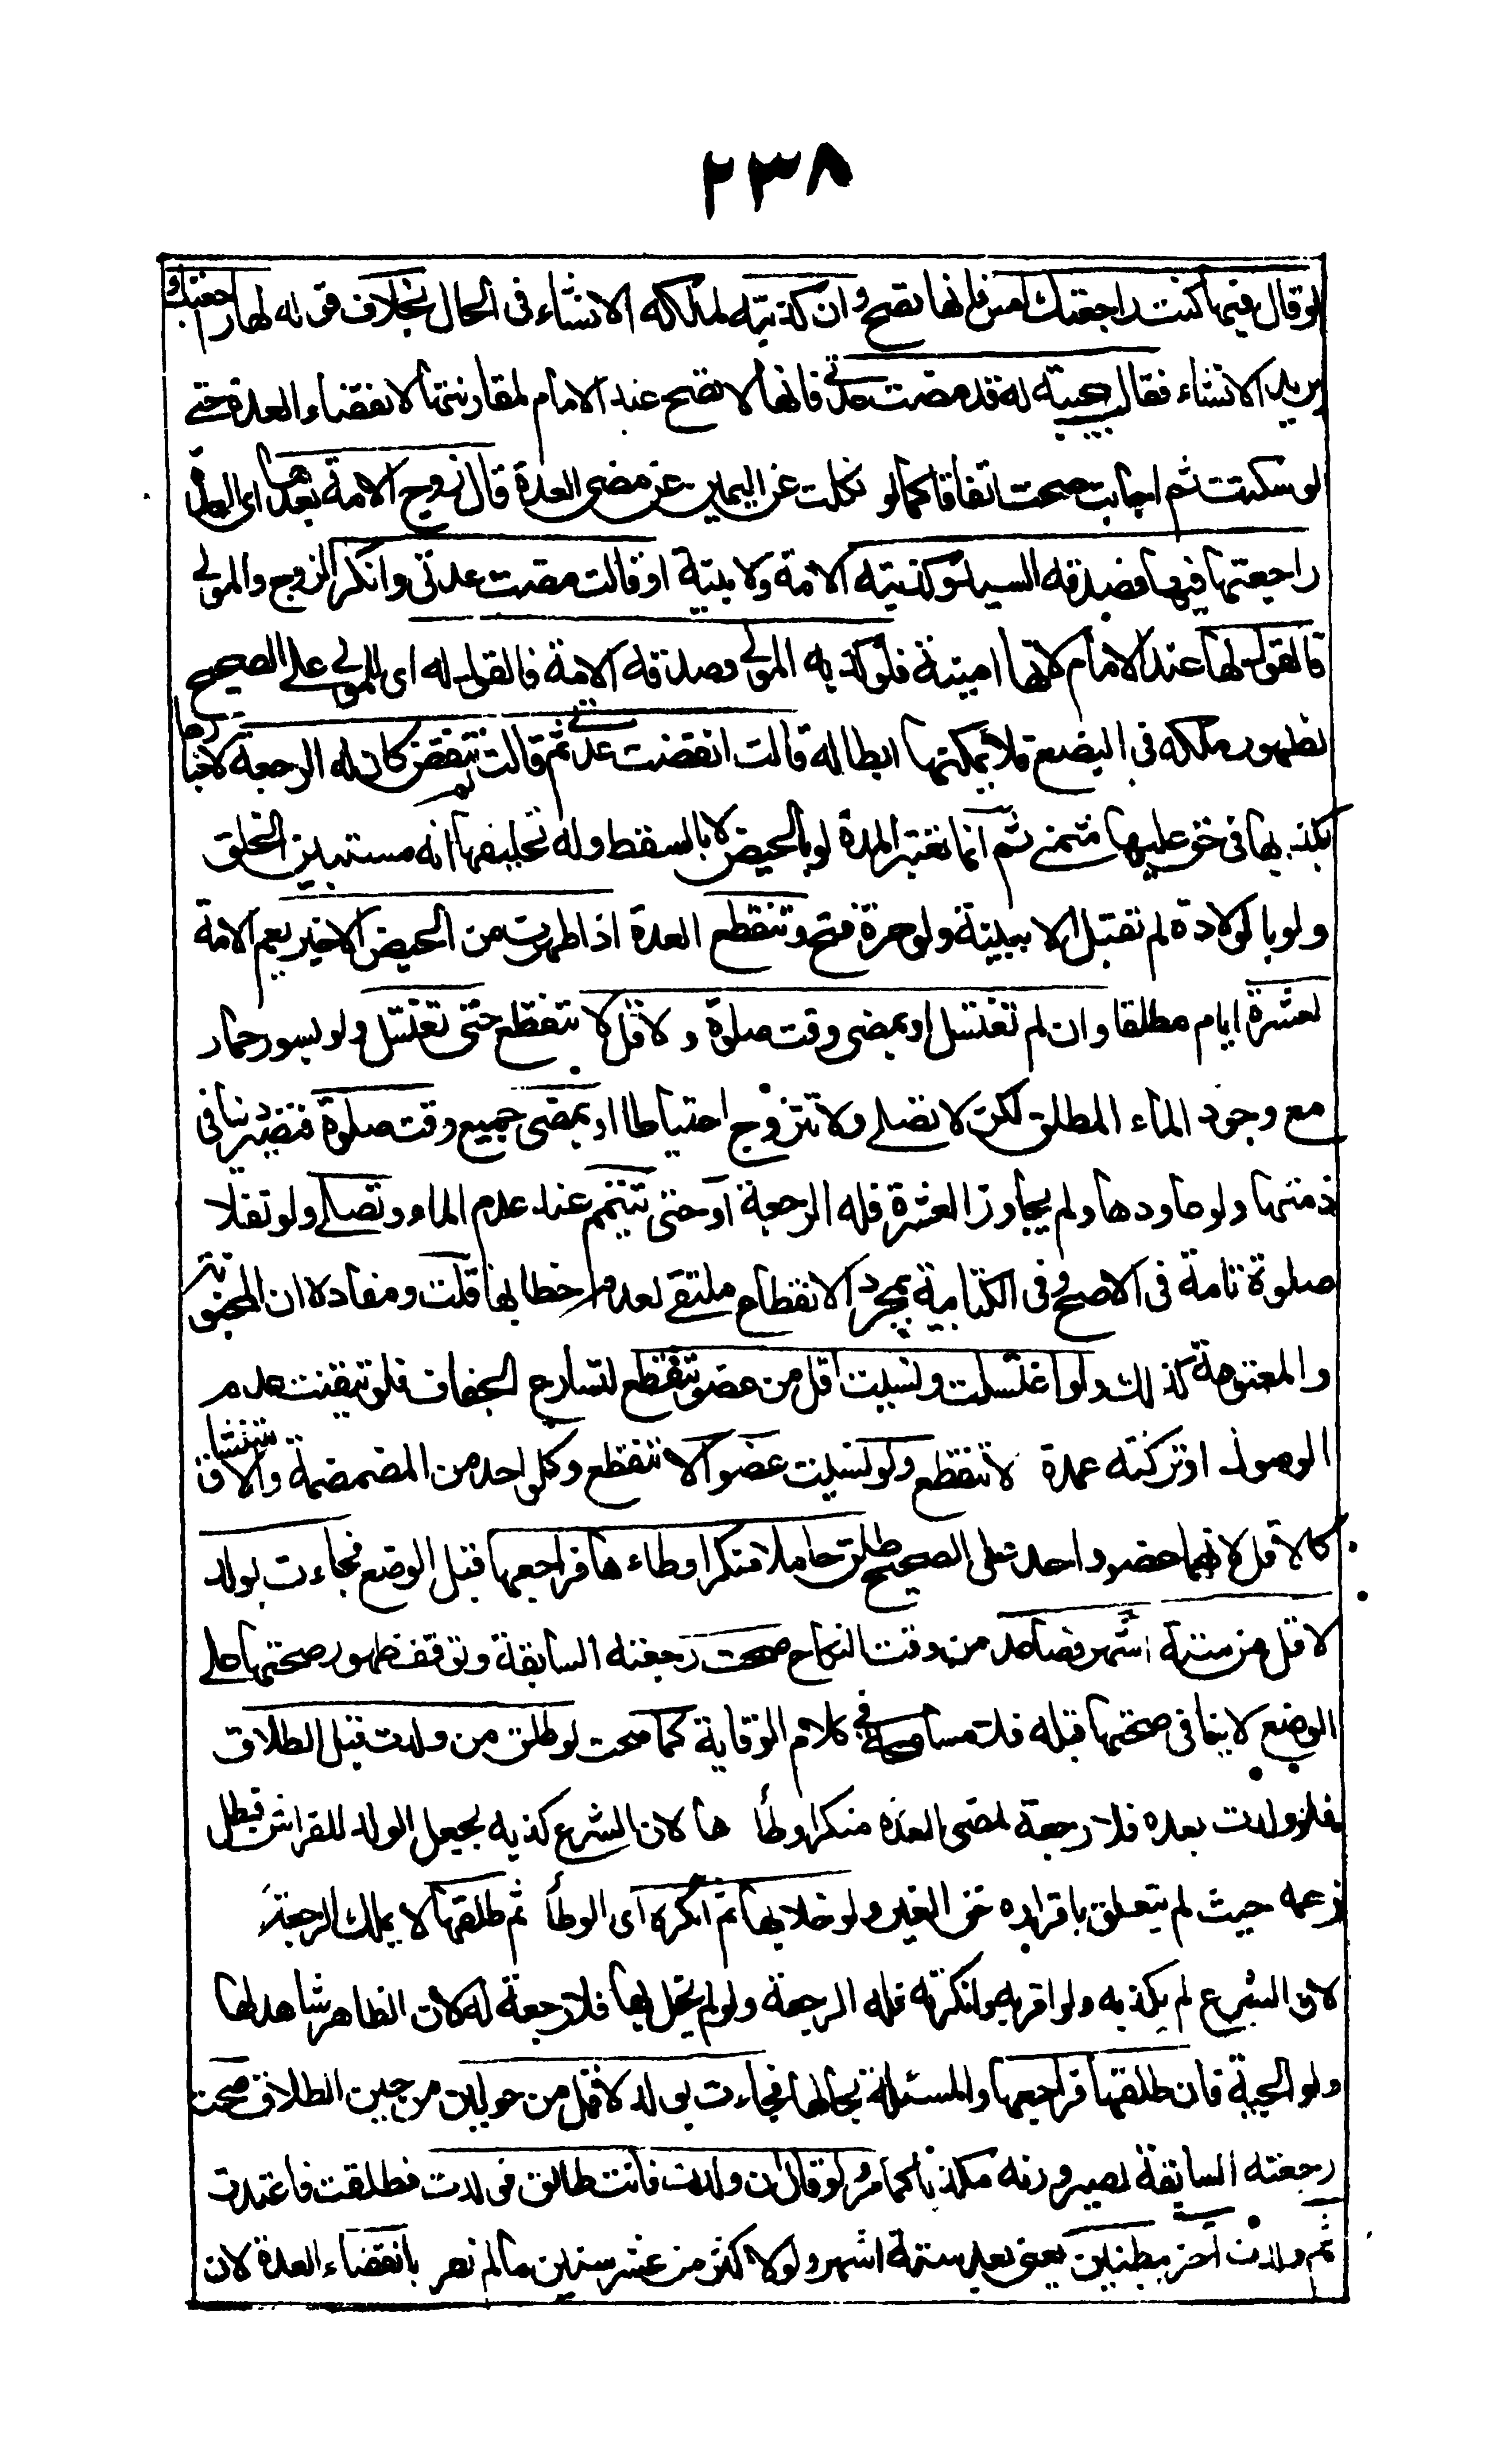 ٢٣٨
لو قال فيها كنت راجعتك امس فانها تصح وان كذبته لملكه الانشاء فى الحال بخلاف قوله لها راجعتك و
يريد الانشاء فقالت مجيبة له قد مضت عدتى فانها لا تصح عند الامام لمقارنتها لانقضاء العدة حتى
لو سكتت ثم اجابت صحت اتفاقا كما لو نكلت عن اليمين عن مضى العدة قال زوج الامة بعدها اى العدة
راجعتها فيها فصدقه السيد وكذبته الامة ولا بينة او قالت مضت عدتى وانكر الزوج والمولى
فالقول لها عند الامام لانها امينة فلو كذبه المولى وصدقته الامة فالقول له اى للمولى على الصحيح
لظهور ملكه فى البضع فلا يمكنها ابطاله قالت انقضت عدتى ثم قالت لم تنقض كان له الرجعة لاخبارها
بكذبها فى حق عليها شمنى ثم انما تعتبر المدة لو بالحيض لا بالسقط وله تحليفها انه مستبين الخلق
ولو بالولادة لم تقبل الا ببينة ولو حرة فتح وتنقطع العدة اذا طهرت من الحيض الاخير يعم الامة
لعشرة ايام مطلقا وان لم تغتسل او بمضى وقت صلوة ولاقل لا تنقطع حتى تغتسل ولو بسور حمار
مع وجود الماء المطلق لكن لا تصلى ولا تتزوج احتياطا او بمضى جميع وقت صلوة فتصير دينا فى
ذمتها ولو عاودها ولم يجاوز العشرة فله الرجعة او حتى تتيمم عند عدم الماء وتصلى ولو نفلا
صلوة تامة فى الاصح وفى الكتابية بمجرد الانقطاع ملتقى لعدم خطابها قلت ومفاده ان المجنونة
والمعتوهة كذلك ولو اغتسلت ونسيت اقل من عضو تنقطع لتسارع الجفاف فلو تيقنت عدم
الوصول او تركته عمدة لا تنقطع ولو نسيت عضوا لا تنقطع وكل واحد من المضمضة والاستنشاق
كالاقل لانهما عضو واحد على الصحيح طلق حاملا منكرا وطاءها فراجعها قبل الوضع فجاءت بولد
لاقل من ستة اشهر فصاعد من وقت النكاح صحت رجعته السابقة وتوقف ظهور صحتها على
الوضع لا ينافى صحتها قبله فلا مسامحة فى كلام الوقاية كما صحت لو طلق من ولدت قبل الطلاق
فلو ولدت بعده فلا رجعة لمضى العدة منكرا وطأ ها لان الشرع كذبه بجعل الولد للفراش فبطل
زعمه حيث لم يتعلق باقراره حق الغير ولو خلا بها ثم انكره اى الوطأ ثم طلقها لا يملك الرجعة
لان الشرع لم يكذبه ولو اقر به وانكرته فله الرجعة ولو لم يخل بها فلا رجعة له لان الظاهر شاهد لها
ولو الجية فان طلقها فراجعها والمسئلة بحالها فجاءت بولد لاقل من حولين من حين الطلاق صحت
رجعته السابقة لصيرورته مكذبا كما مر ولو قال ان ولدت فانت طالق فولدت فطلقت فاعتدت
ثم ولدت آخر ببطنين يعنى بعد ستة اشهر ولو لاكثر من عشر سنين ما لم تقر بانقضاء العدة لان